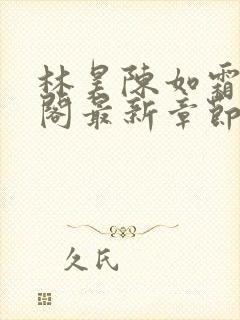 林昊陳如霜
閣最新章節
久氏